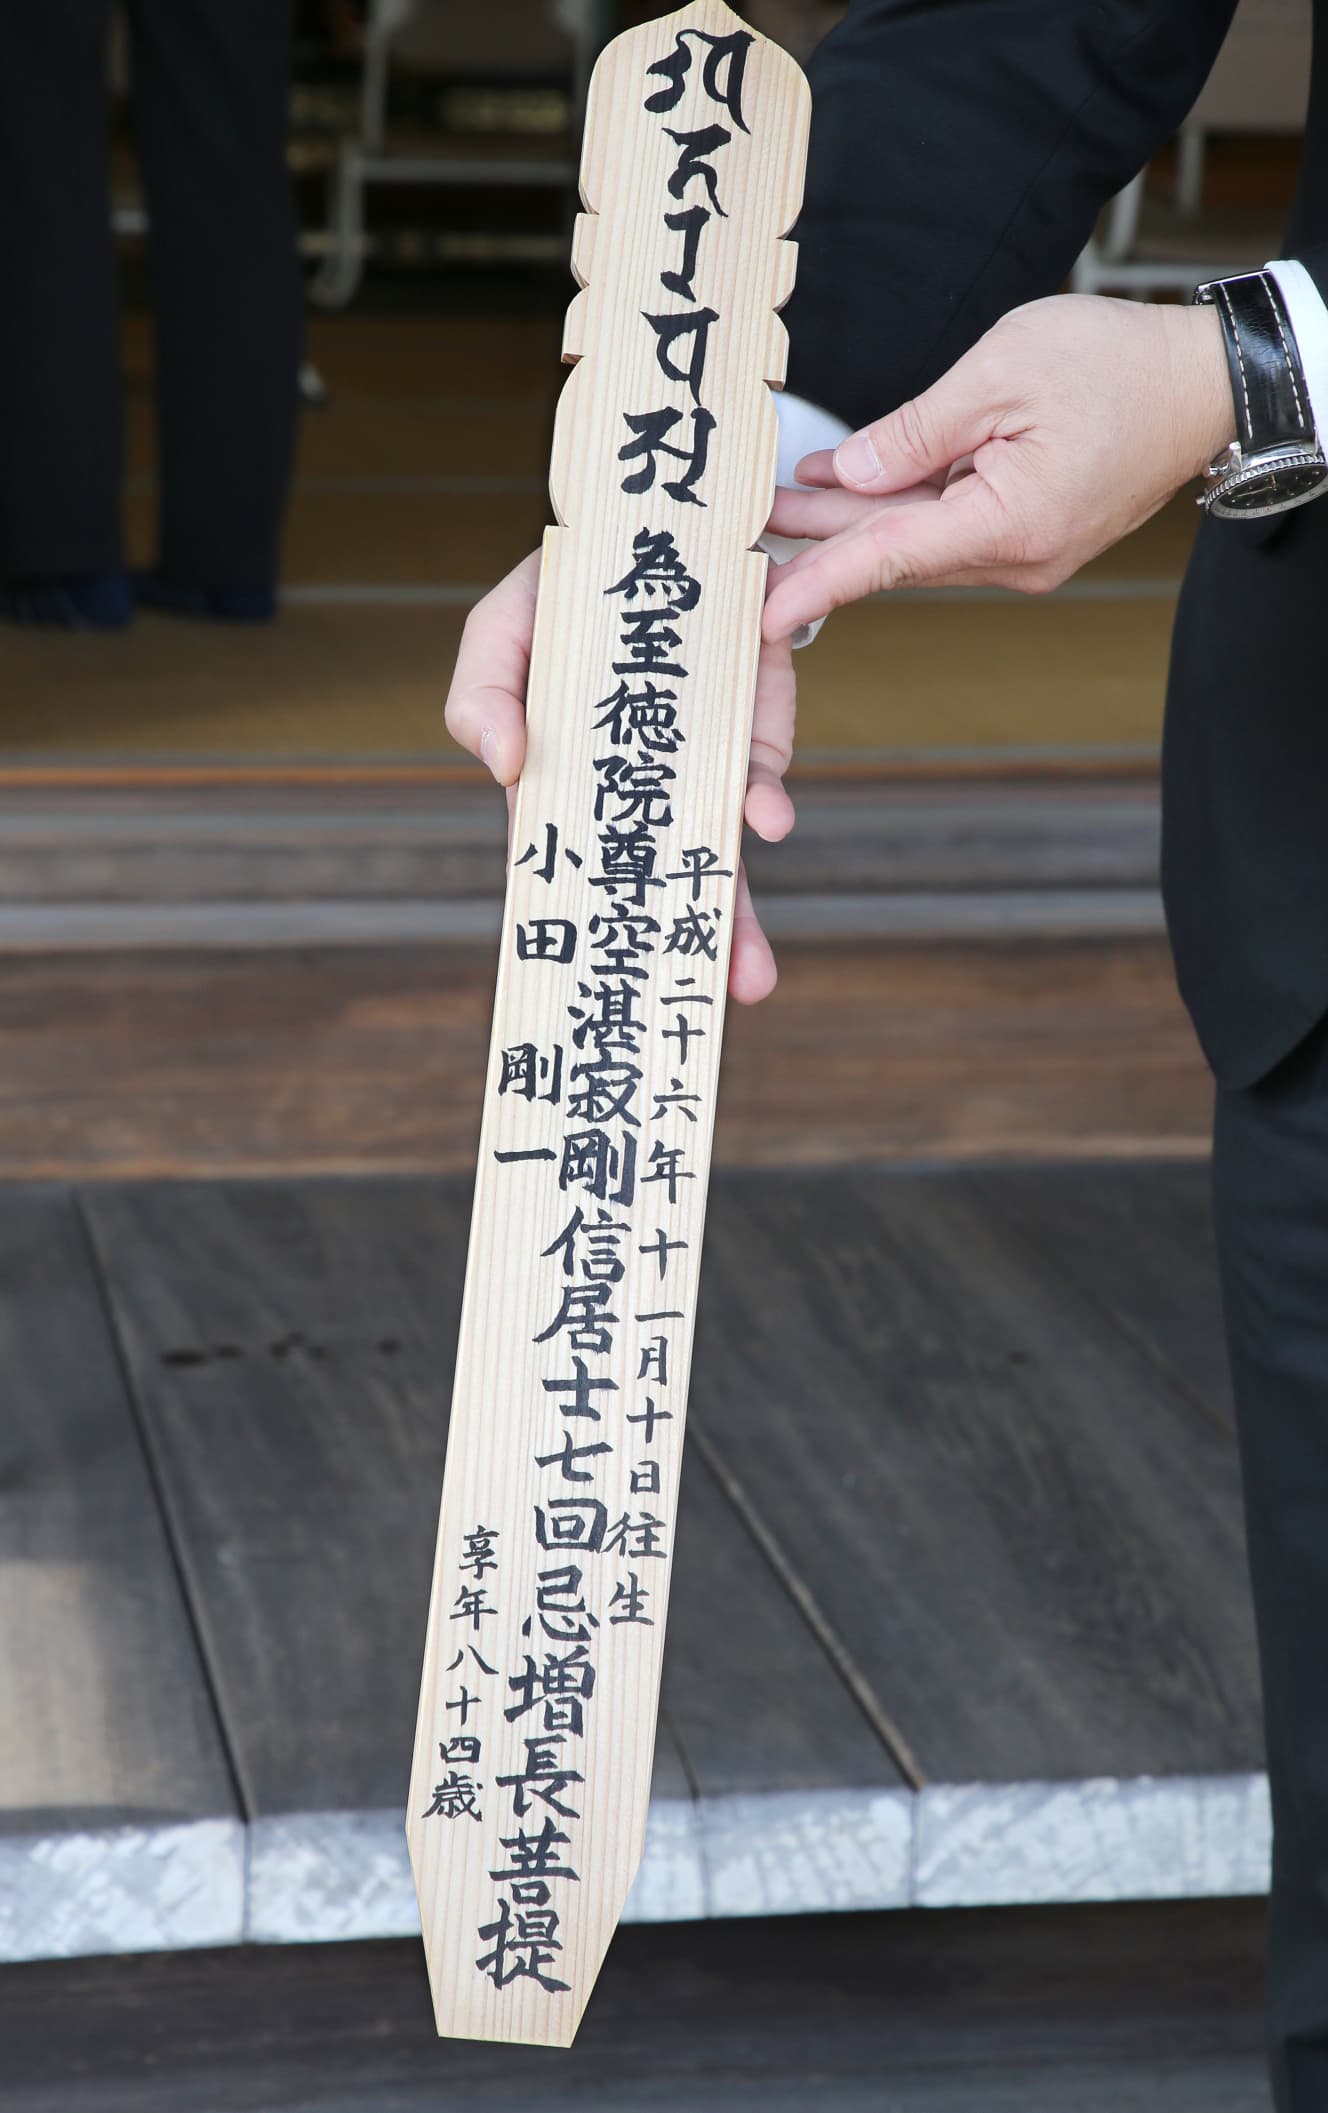 平成二十六年十一月十日往生
為至徳院尊空湛寂剛信居士七回忌増長菩提
小田剛一
享年八十四歳